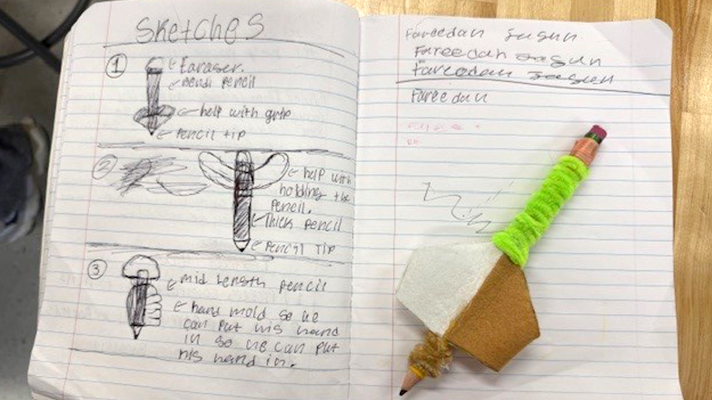 Sketches
①
Earaser.
Bendi pencil
help with grip
pencil tip
②
help with
holding the
pencil.
Thick pencil
pencil tip
③
mid length pencil
hand mold so he
can put his hand
in so he can put
his hand in.
Fareedah Jagun
Fareedah Jagun
Fareedah Jagun
Fareedah